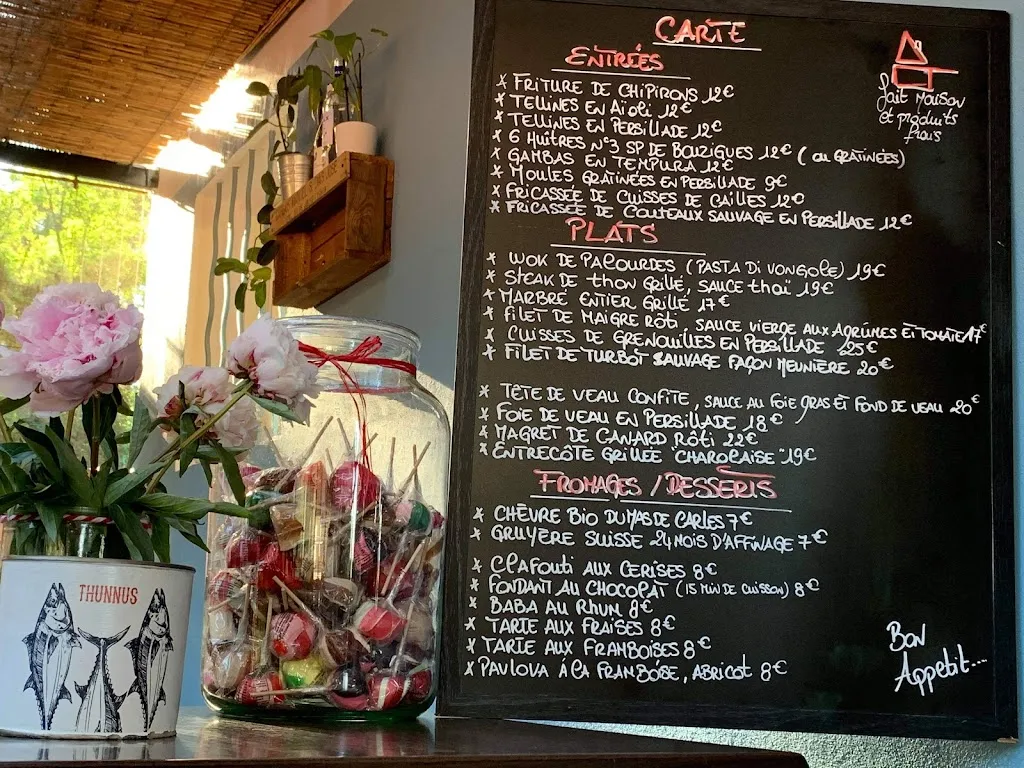 CARTE
ENTRÉES
x FRITURE DE CHIPIRONS 12€
x TELLINES EN Aïoli 12€
x TELLINES EN PERSILLADE 12€
x 6 HUITRES N°3 SP DE BOUZIGUES 12€ (ou GRATINÉES)
x GAMBAS EN TEMPURA 12€
x MOULES GRATINÉES EN PERSILLADE 9€
x FRICASSÉE DE CUISSES DE CAILLES 12€
x FRICASSÉE DE COUTEAUX SAUVAGE EN PERSILLADE 12€
PLATS
x WOK DE PALOURDES (PASTA DI VONGOLE) 19€
x STEAK DE thon GRILLÉ, SAUCE thaï 19€
x MARBRÉ ENTIER GRILLÉ 17€
x FILET DE MAIGRE RÔTI, SAUCE VIERGE AUX AGRUMES ET TOMATE 17€
x CUISSES DE GRENOUILLES EN PERSILLADE 25€
x FILET DE TURBOT SAUVAGE FAÇON MEUNIÈRE 20€
x TÊTE DE VEAU CONFITE, SAUCE AU FOIE GRAS ET FOND DE VEAU 20€
x FOIE DE VEAU EN PERSILLADE 18€
x MAGRET DE CANARD RÔTI 22€
x ENTRECÔTE GRILLÉE "CHAROLAISE" 19€
FROMAGES / DESSERTS
x CHÈVRE Bio DU MAS DE CARLES 7€
x GRUYÈRE SUISSE 24 MOIS D'AFFINAGE 7€
x CLAFOUTI AUX CERISES 8€
x FONDANT AU CHOCOLAT (15 MIN DE CUISSON) 8€
x BABA AU RHUM 8€
x TARTE AUX FRAISES 8€
x TARTE AUX FRAMBOISES 8€
x PAVLOVA À LA FRAMBOISE, ABRICOT 8€
fait MAISON
et produits
frais
BON
Appetit...
THUNNUS